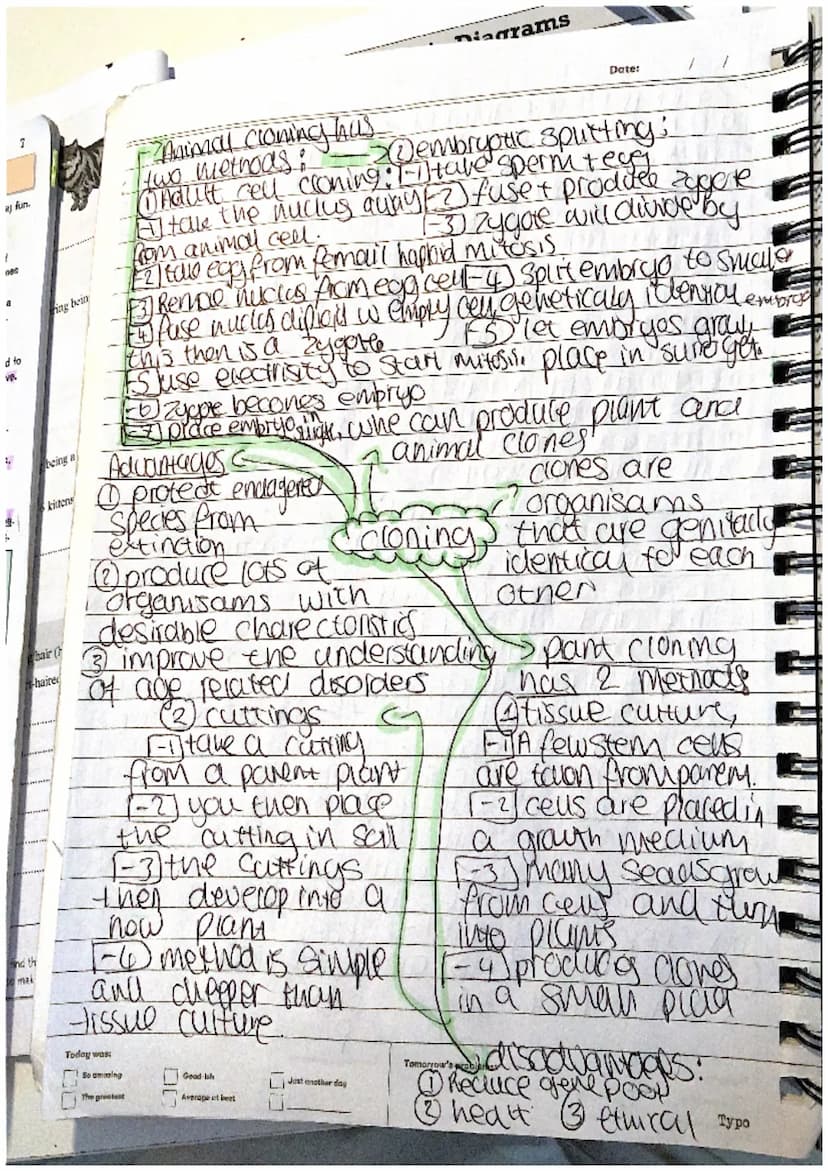 Diagrams
Date: / /
7
Animal cloning has
two methods:
① Adult cell cloning:
-1) take the nucleus away
from animal cell.
-2) take egg from femail haploid
-3) Remove nucleus from egg cell
-4) fuse nucleus diploid w empty cell
this then is a zygote
-5) use electrisity to start mitosis.
-6) zygote becomes embryo
-7) place embryo in
② embryotic splitting:
-1) take sperm + egg
-2) fuse + produce zygote
-3) zygote will divide by
mitosis
-4) Split embryo to
genetically identical embryo
-5) let embryos grow,
place in
can produce plant and
animal clones
clones are
organisams
that are
identical to each
other
cloning
Advantages
① protect endagered
species from
extinction
② produce lots of
organisams with
desirable
③ improve the understanding
of age related disorders
plant cloning
has 2 methods
① tissue culture,
-1) A few stem cells
are from parent.
-2) cells are placed in
a growth medium
-3) many grow
from cells and turn
into plants
-4) produces clones
in a small
② cuttings
-1) take a cutting
from a parent plant
-2) you then place
the cutting in soil
-3) the cuttings
then develop into a
new plant
-4) method is simple
and cheeper than
tissue culture
disadvantages:
① Reduce gene pool
② ③ ethical
Today was:
So amazing
Good-ish
Just another day
The greatest
Average at best
Tomorrow's problems:
Typo